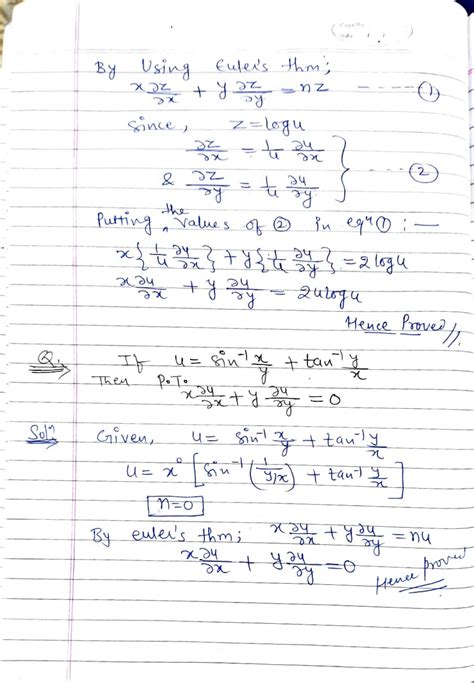 By Using Euler's thm;
x ∂z/∂x + y ∂z/∂y = nz ---- ①
Since, z = logu
∂z/∂x = 1/u ∂u/∂x
& ∂z/∂y = 1/u ∂u/∂y ---- ②
Putting the values of ② in eqⁿ ① : —
x{1/u ∂u/∂x} + y{1/u ∂u/∂y} = 2 logu
x ∂u/∂x + y ∂u/∂y = 2ulogu
Hence Proved //.
Q. If u = sin⁻¹ x/y + tan⁻¹ y/x
Then P.T. x ∂u/∂x + y ∂u/∂y = 0
Solⁿ Given, u = sin⁻¹ x/y + tan⁻¹ y/x
u = x⁰ [sin⁻¹ (1/(y/x)) + tan⁻¹ y/x]
n=0
By euler's thm; x ∂u/∂x + y ∂u/∂y = nu
x ∂u/∂x + y ∂u/∂y = 0
Hence proved